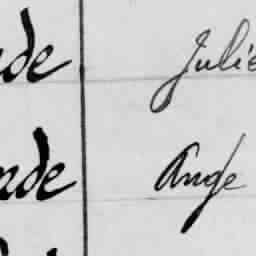 de Julie
nde Ange